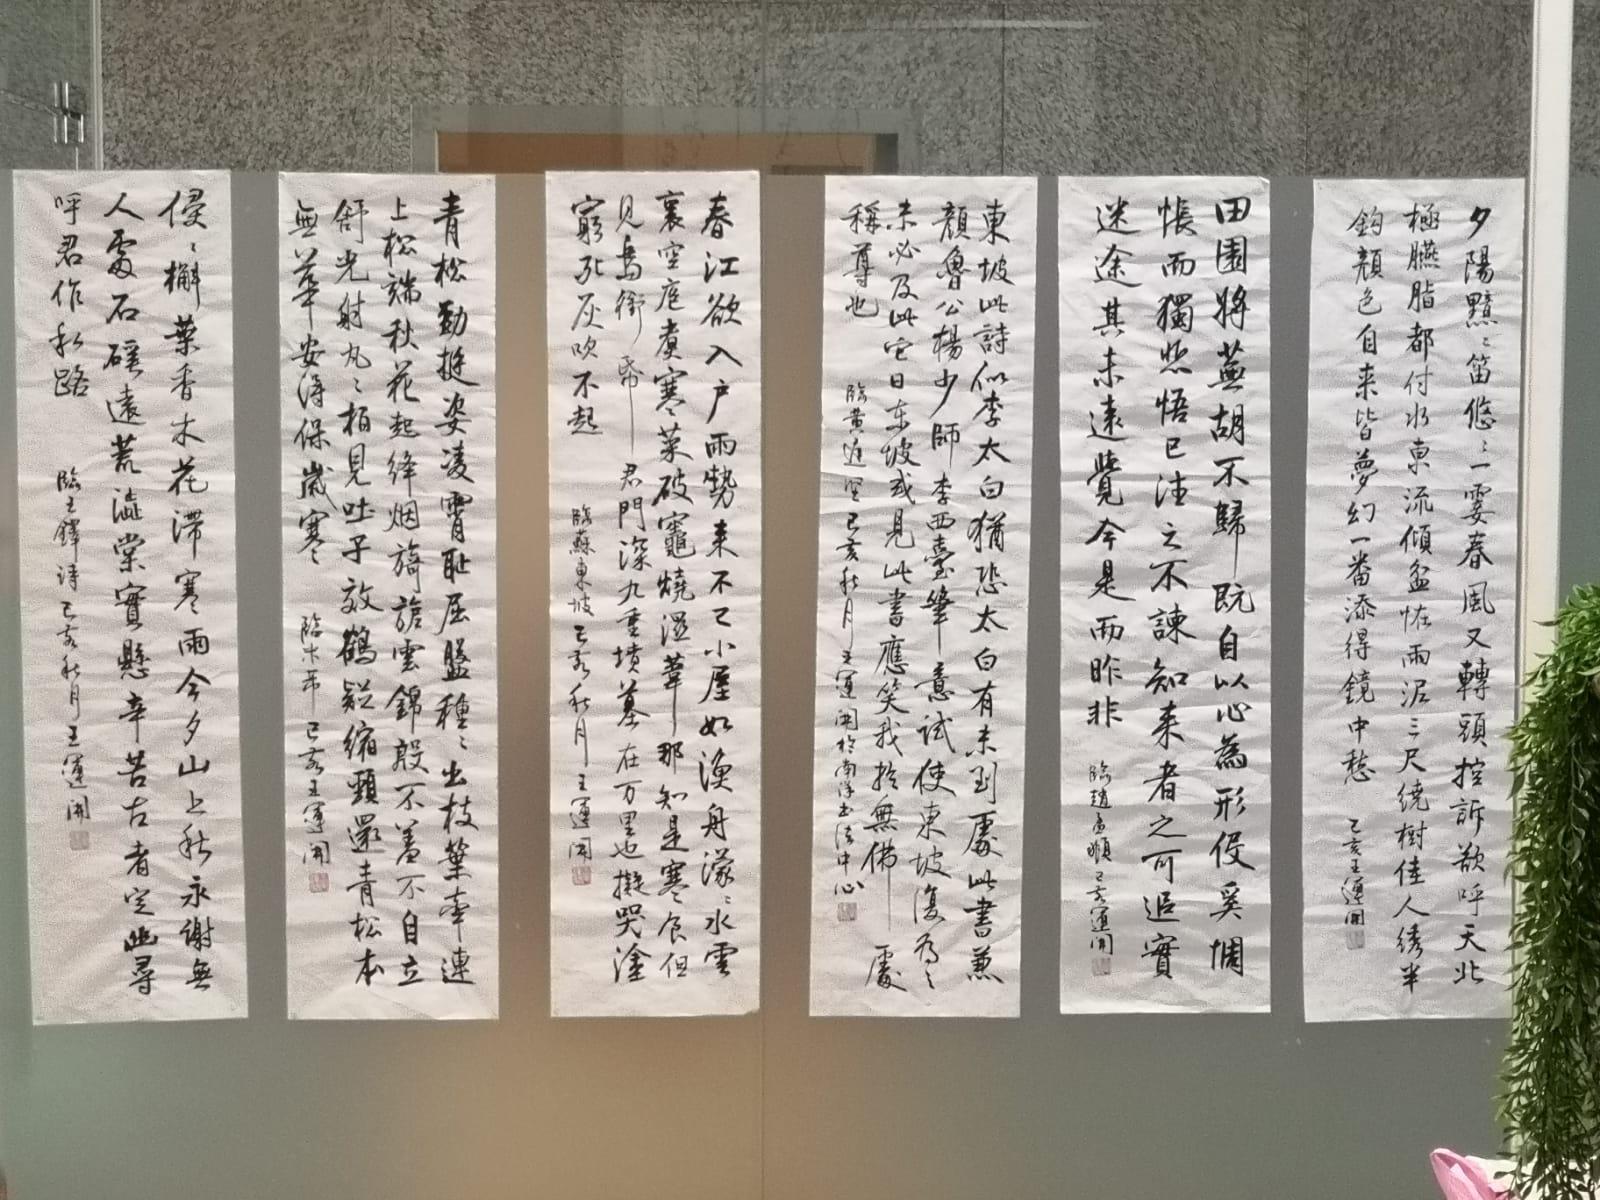 夕陽黯〻笛悠〻一霎春風又轉頭控訴欲呼天北
極臙脂都付水東流傾盆怯雨泥三尺繞樹佳人綉半
鈎顏色自来皆夢幻一番添得鏡中愁
己亥王運開
田園將蕪胡不歸既自以心為形役奚惆
悵而獨悲悟已往之不諫知来者之可追實
迷途其未遠覺今是而昨非
臨趙孟頫己亥運開
東坡此詩似李太白猶恐太白有未到處此書兼
顏魯公楊少師李西臺筆意試使東坡復為之
未必及此它日東坡或見此書應笑我於無佛處
稱尊也
臨黃庭堅己亥秋月王運開於南洋書法中心
春江欲入户雨勢来不已小屋如漁舟濛〻水雲
裏空庖煑寒菜破竈燒濕葦那知是寒食但
見烏銜帋君門深九重墳墓在万里也擬哭塗
窮死灰吹不起
臨蘇東坡己亥秋月王運開
青松勁挺姿凌霄恥屈盤種〻出枝葉牽連
上松端秋花起絳烟旖旎雲錦殷不羞不自立
舒光射丸〻柏見吐子效鶴疑縮頸還青松本
無華安得保嵗寒
臨米芾己亥王運開
侵〻檞葉香木花滞寒雨今夕山上秋永謝無
人處石磎遠荒澁棠實懸辛苦古者定幽尋
呼君作私路
臨王鐸詩己亥秋月王運開